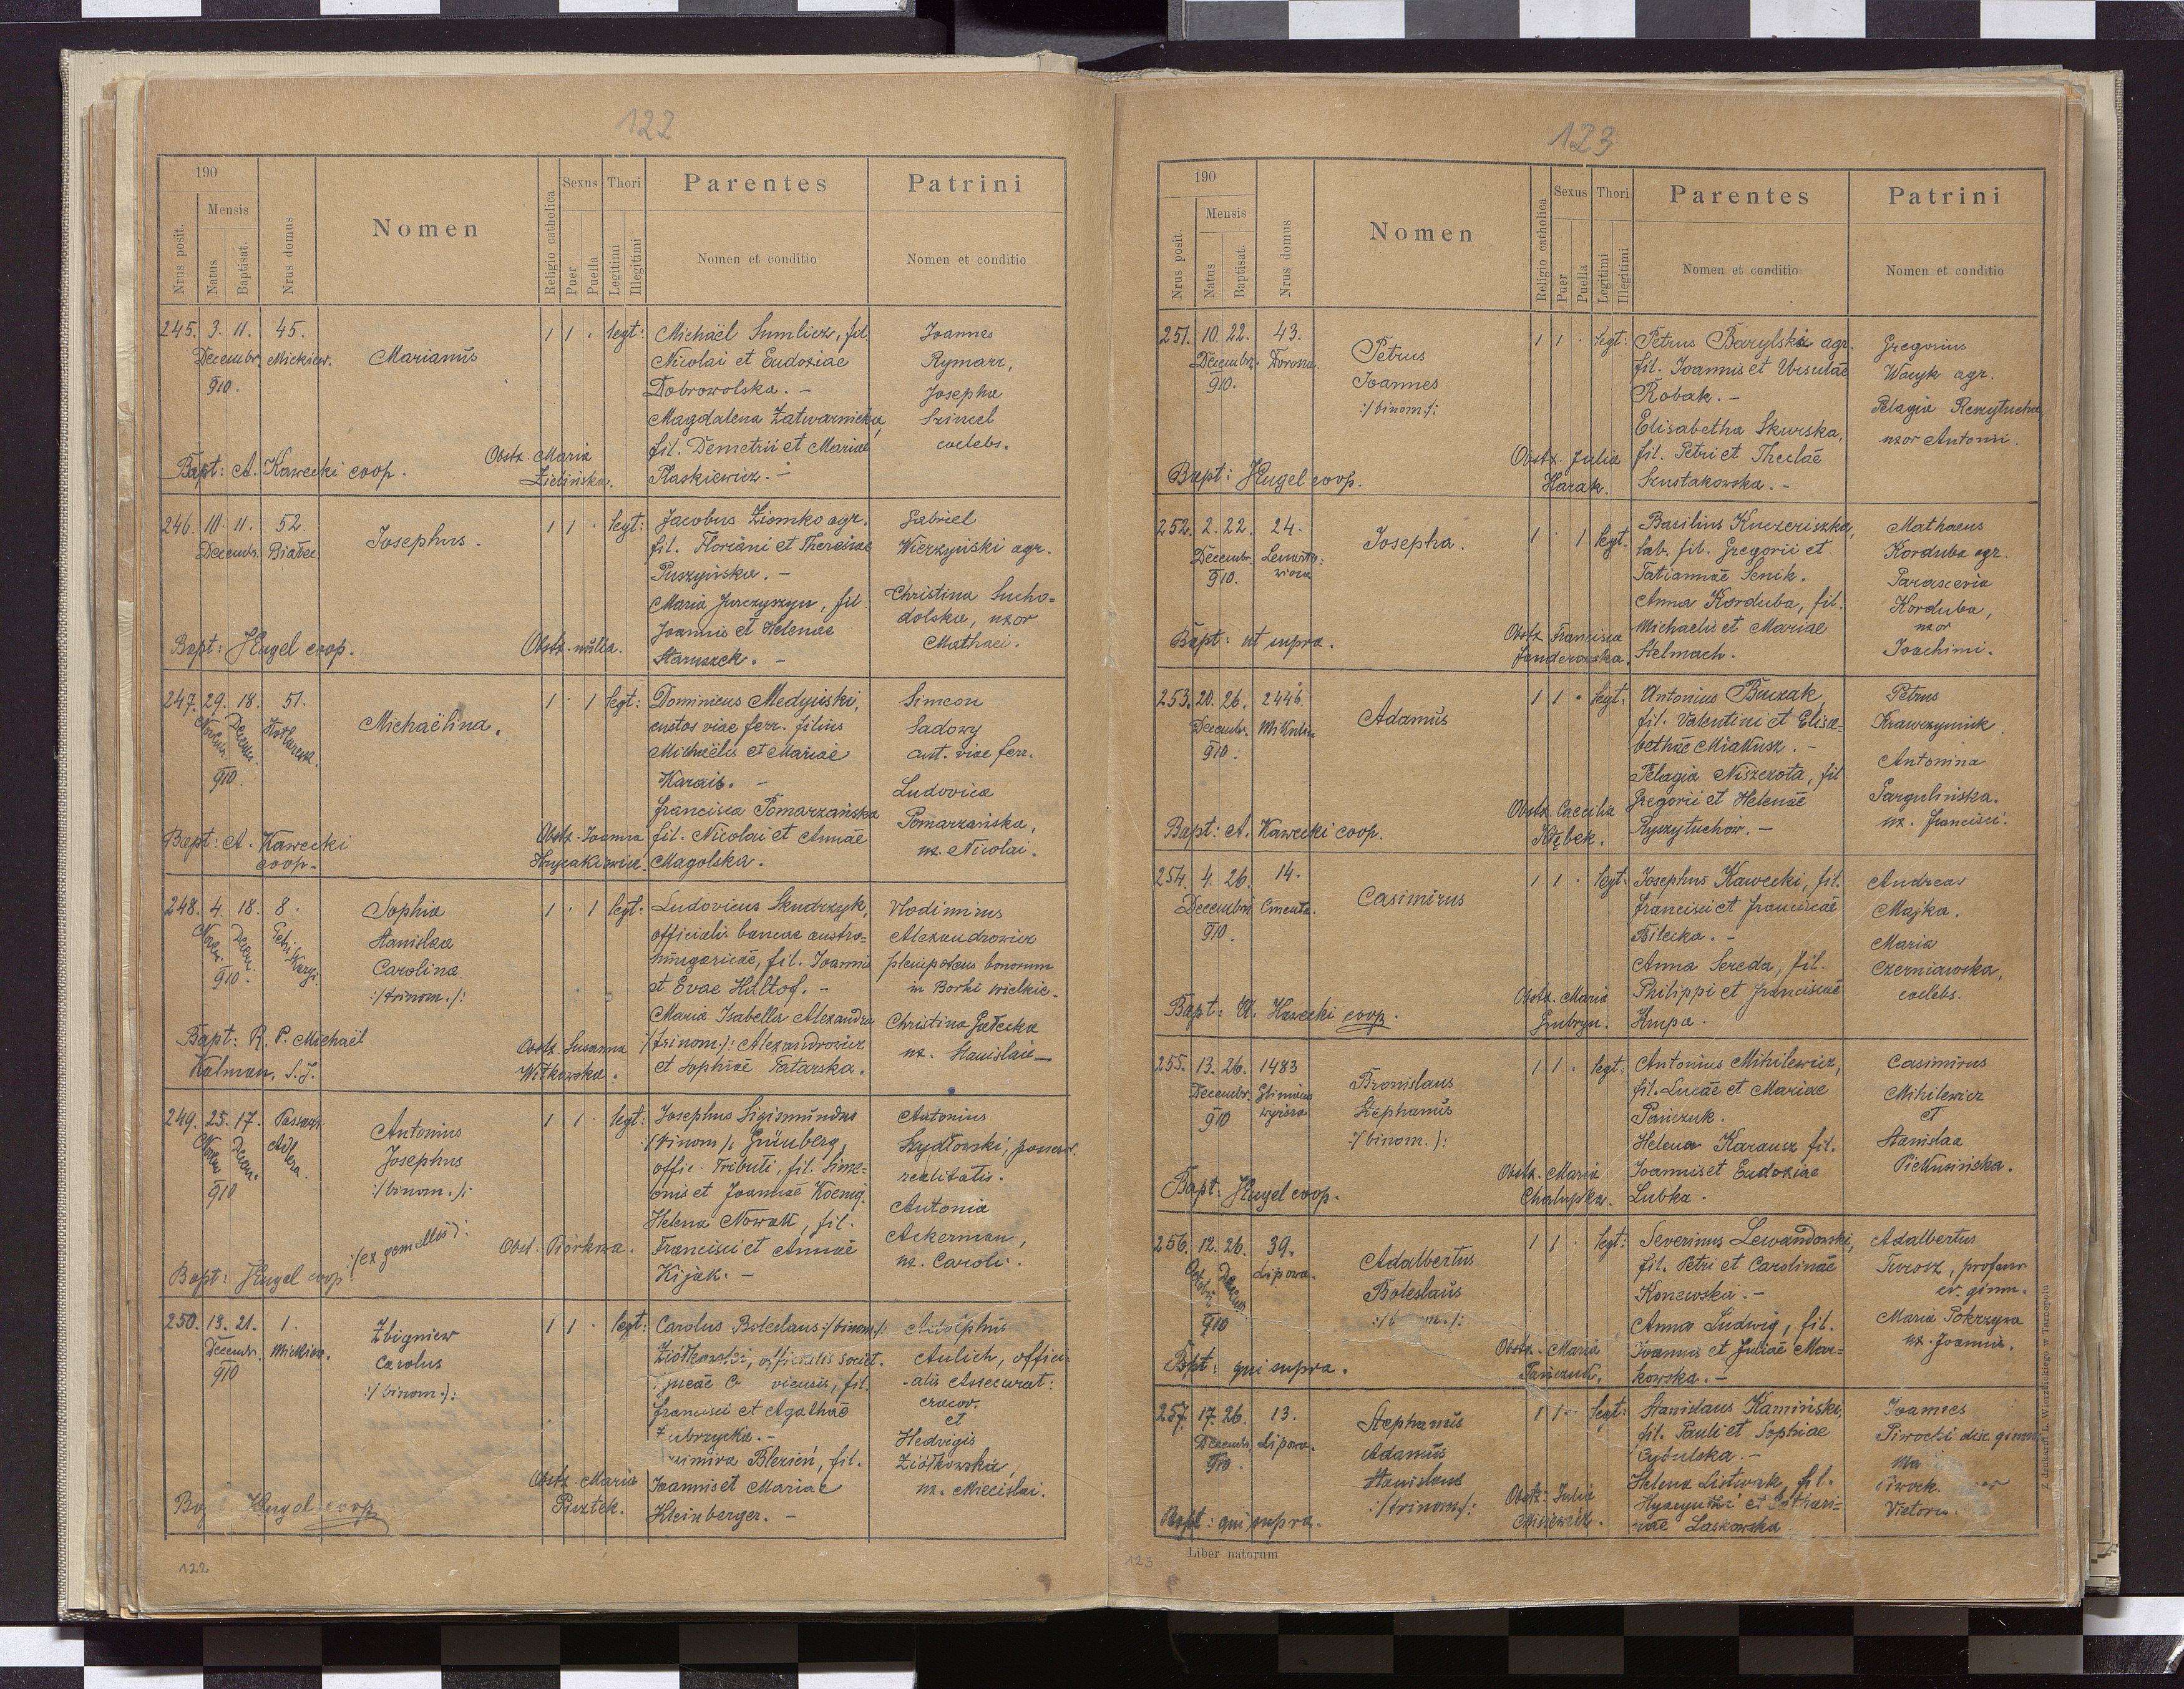 122
190
Mensis
Nrus posit.
Natus
Baptisat.
Nrus domus
Nomen
Religio catholica
Sexus
Puer
Puella
Thori
Legitimi
Illegitimi
Parentes
Nomen et conditio
Patrini
Nomen et conditio
245. 3. 11. 45.
Decembr. Mickiew.
910.
Marianus
1 1 . legt:
Michaël Sumlicz, fil.
Nicolai et Eudoxiae
Dobrowolska. -
Magdalena Zatwarnicka,
fil. Demetrii et Mariae
Płaskiewicz. -
Joannes
Rymarz,
Josepha
Szincel
coelebs.
Obstz. Maria
Zielińska.
Bapt: A. Kawecki coop.
246. 10. 11. 52.
Decembr. Białec.
Josephus.
1 1 . legt:
Jacobus Ziomko agr.
fil. Floriani et Theresiae
Puszyńska. -
Maria Jurczyszyn, fil.
Joannis et Helenae
Staruszek. -
Gabriel
Wierzyński agr.
Christina Sucho=
dolska, uxor
Mathaei.
Obstz. nulla.
Bapt: Hugel coop.
247. 29. 18. 51.
Novembr. Decembr.
910.
Michaëlina.
1 . 1 legt:
Dominicus Medyński,
custos viae ferr. filius
Michaëlis et Mariae
Karais. -
Francisca Pomarzańska
fil. Nicolai et Annae
Magolska.
Simeon
Sadowy
aut. viae ferr.
Ludovica
Pomarzańska,
ux. Nicolai.
Obstz. Joanna
Hryzakiewicz.
Bapt: A. Kawecki
coop.
248. 4. 18. 8.
Novem. Decem. Petri Kargi.
910.
Sophia
Stanislaa
Carolina
:/trinom./:
1 . 1 legt:
Ludovicus Skudrzyk,
officialis bancae austro=
hungaricae, fil. Joannis
et Evae Hiltof. -
Maria Isabella Alexandra
:/trinom./: Alexandrowicz
et Sophiae Tatarska.
Vlodimirus
Alexandrowicz
plenipotens bonorum
in Borki wielkie.
Christina Gałecka
ux. Stanislai
Obstz. Susanna
Witkowska.
Bapt: R. P. Michaël
Kalman. S. J.
249. 25. 17. Passaż
Novem. Decem. Adlera
910
Antonius
Josephus
:/binom./:
:/ex gemellis/:
1 1 . legt:
Josephus Sigismundus
:/binom/: Grünberg,
offic. Tributi, fil. Sime=
onis et Joannae Koenig.
Helena Nowak, fil.
Francisci et Annae
Kijak. -
Antonius
Szydłowski, possess.
realitatis.
Antonia
Ackerman,
ux. Caroli.
Obst. Piórkowa.
Bapt: Hugel coop.
250. 13. 21. 1.
Decembr. Mickiew.
910
Zbigniew
Carolus
:/binom./:
1 1 . legt:
Carolus Boleslaus :/binom./:
Ziółkowski, officialis societ.
viensis, fil.
Francisci et Agathae
ubrzycka. -
imira Blezień, fil.
Joannis et Mariae
Kleinberger. -
Adolphus
Aulich, offici=
alis Assecurat:
cracov.
et
Hedvigis
Ziółkowska,
ux. Miecislai.
Obstz. Maria
Pisztek.
Hugel coop.
122
123
190
Mensis
Nrus posit.
Natus
Baptisat.
Nrus domus
Nomen
Religio catholica
Sexus
Puer
Puella
Thori
Legitimi
Illegitimi
Parentes
Nomen et conditio
Patrini
Nomen et conditio
251. 10. 22. 43.
Decembr.
910.
Petrus
Joannes
:/binom./:
1 1 . legt:
Petrus Barylski agr.
fil. Joannis et Ursulae
Robak. -
Elisabetha Skurska,
fil. Petri et Theclae
Szustakowska. -
Gregorius
Woryk agr.
Pelagia Reszytucha
uxor Antonii.
Obstz. Julia
Harak.
Bapt: Hugel coop.
252. 2. 22. 24.
Decembr.
910.
Josepha.
1 . 1 legt.
Basilius Kuczeriszka,
lab. fil. Gregorii et
Tatiannae Senik.
Anna Korduba, fil.
Michaelis et Mariae
Stelmach.
Mathaeus
Korduba agr.
Parasceria
Korduba,
uxor
Joachimi.
Obstz. Francisca
Janderowska.
Bapt: ut supra.
253. 20. 26. 2446
Decembr. Mikulin.
910.
Adamus
1 1 . legt.
Antonius Burzak,
fil. Valentini et Elisa=
bethae Miakusz. -
Pelagia Niszczota, fil
Gregorii et Helenae
Ryszytuchów. -
Petrus
Krawczyniuk
Antonina
Gargulińska.
ux. Francisci.
Obstz. Caecilia
Kłębek.
Bapt: A. Kawecki coop.
254. 4. 26. 14.
Decembr. Cmenta.
910.
Casimirus
1 1 . legt:
Josephus Kawecki, fil.
Francisci et Franciscae
Bilecka. -
Anna Sereda, fil.
Philippi et Franciscae
Krupa.
Andreas
Majka.
Maria
Czerniawska,
coelebs.
Obstz. Maria
Zubryn.
Bapt: A. Kawecki coop.
255. 13. 26. 1483
Decembr.
910
Bronislaus
Stephanus
:/binom./:
1 1 . legt:
Antonius Mihilewicz,
fil. Lucae et Mariae
Pańczuk.
Helena Karausz fil.
Joannis et Eudoxiae
Lubka.
Casimirus
Mihilewicz
et
Stanislaa
Piekusińska.
Obstz. Maria
Chałupka.
Bapt. Hugel coop.
256. 12. 26. 39.
Octobr. Decembr. Lipowa.
910
Adalbertus
Boleslaus
1 1 . legt:
Severinus Lewandowski,
fil. Petri et Carolinae
Konewska. -
Anna Ludwig, fil.
Joannis et Juliae Mar=
kowska. -
Adalbertus
Turosz, professor
gimn.
Maria Pokrzywa
ux. Joannis.
Obstz. Maria
Pańczuk.
Bapt: qui supra.
257. 17. 26. 13.
Decembr. Lipowa.
910.
Stephanus
Adamus
Stanislaus
:/trinom/:
1 1 . legt:
Stanislaus Kamiński,
fil. Pauli et Sophiae
Cybulska. -
Helena Listwak, fil.
Hyacynthi et Cathari=
nae Laskowska
Joannes
Piwocki disc. gimn.
Ma
Piwock.
Victori.
Obstz: Julia
Bapt: qui supra.
Liber natorum
123
Z drukarni L. Wierzbickiego w Tarnopolu